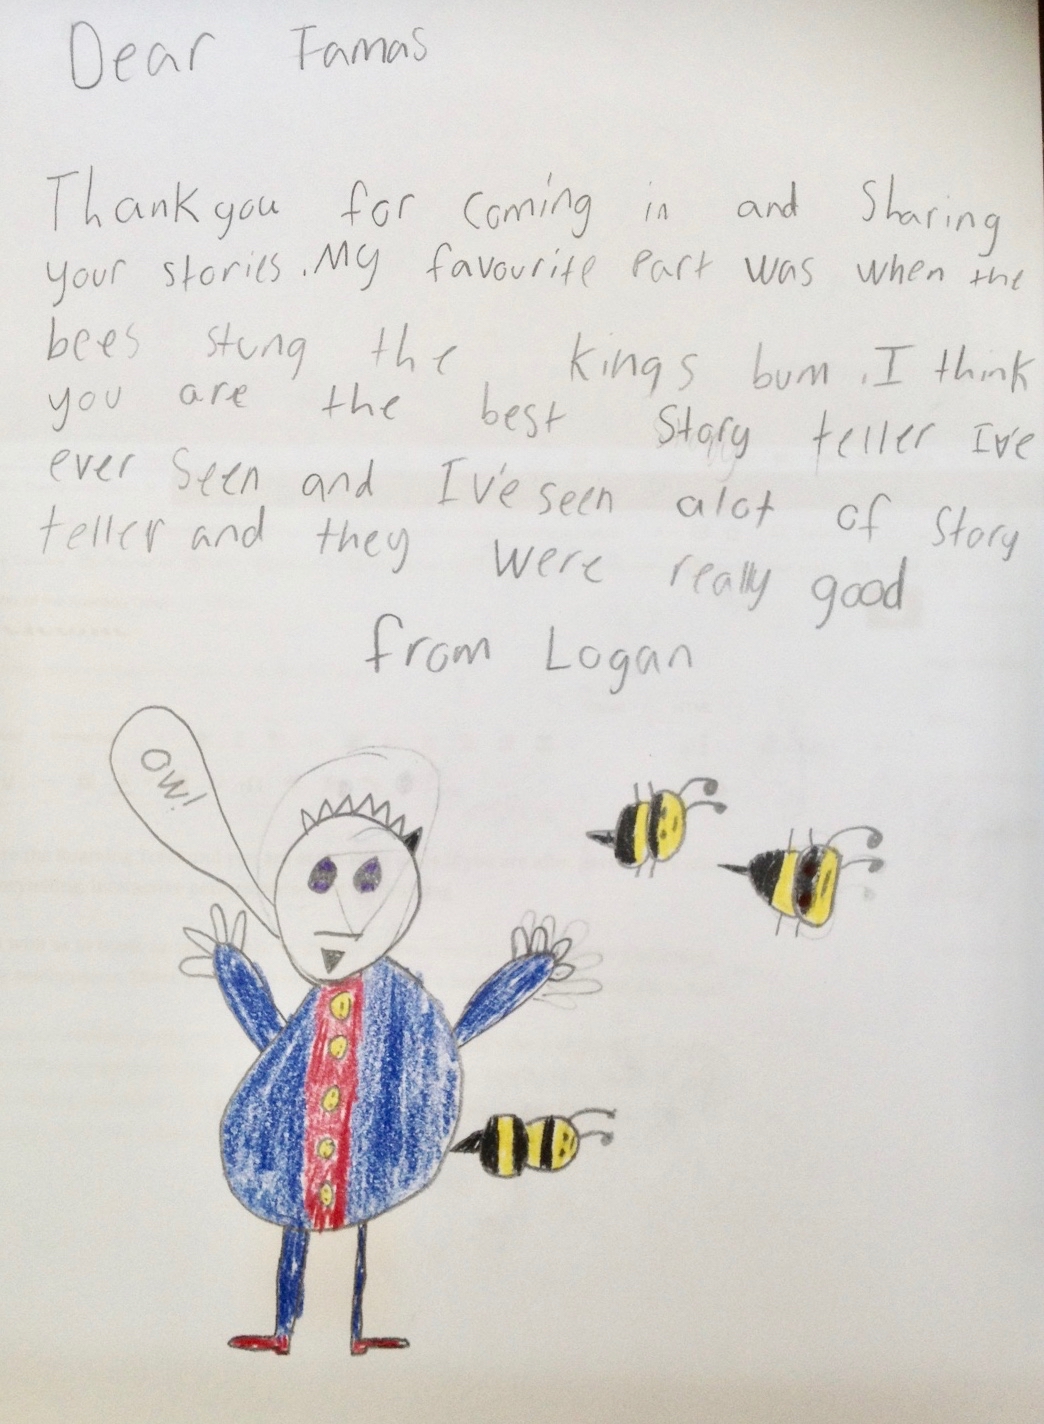 Dear Tamas
Thank you for coming in and Sharing
your stories. My favourite Part was when the
bees stung the kings bum. I think
you are the best Story teller I've
ever seen and I've seen alot of Story
teller and they were really good
from Logan
OW!